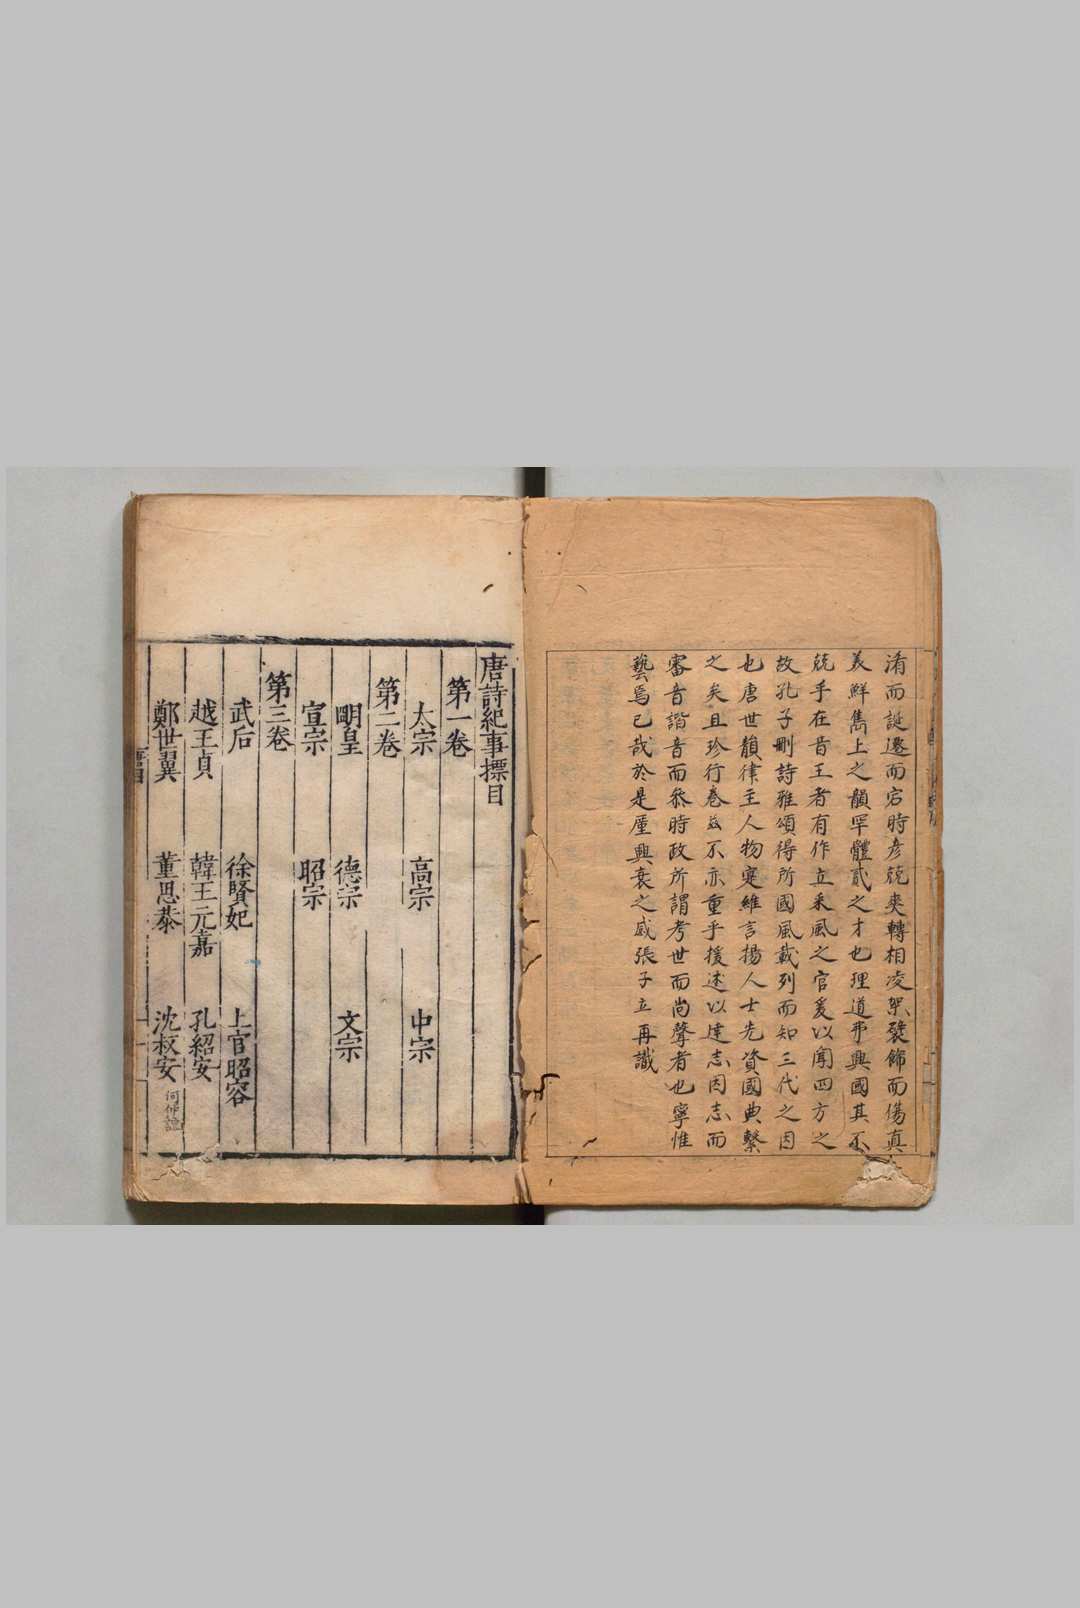 淆而誕遷而宕時彥競爽轉相凌架襞飾而傷真
美鮮雋上之韻罕體貳之才也理道弗興國其不
競乎在昔王者有作立采風之官爰以聞四方之
故孔子刪詩雅頌得所國風載列而知三代之因
也唐世韻律主人物寔維言揚人士先資國典繫
之矣且珍行卷茲不亦重乎援述以達志因志而
審音諧音而叅時政所謂考世而尚聲者也寧惟
藝焉已哉於是厪興衰之感張子立再識
唐詩紀事摽目
第一卷
太宗 高宗 中宗
第二卷
明皇 德宗 文宗
宣宗 昭宗
第三卷
武后 徐賢妃 上官昭容
越王貞 韓王元嘉 孔紹安
鄭世翼 董思恭 沈叔安 何仲諠